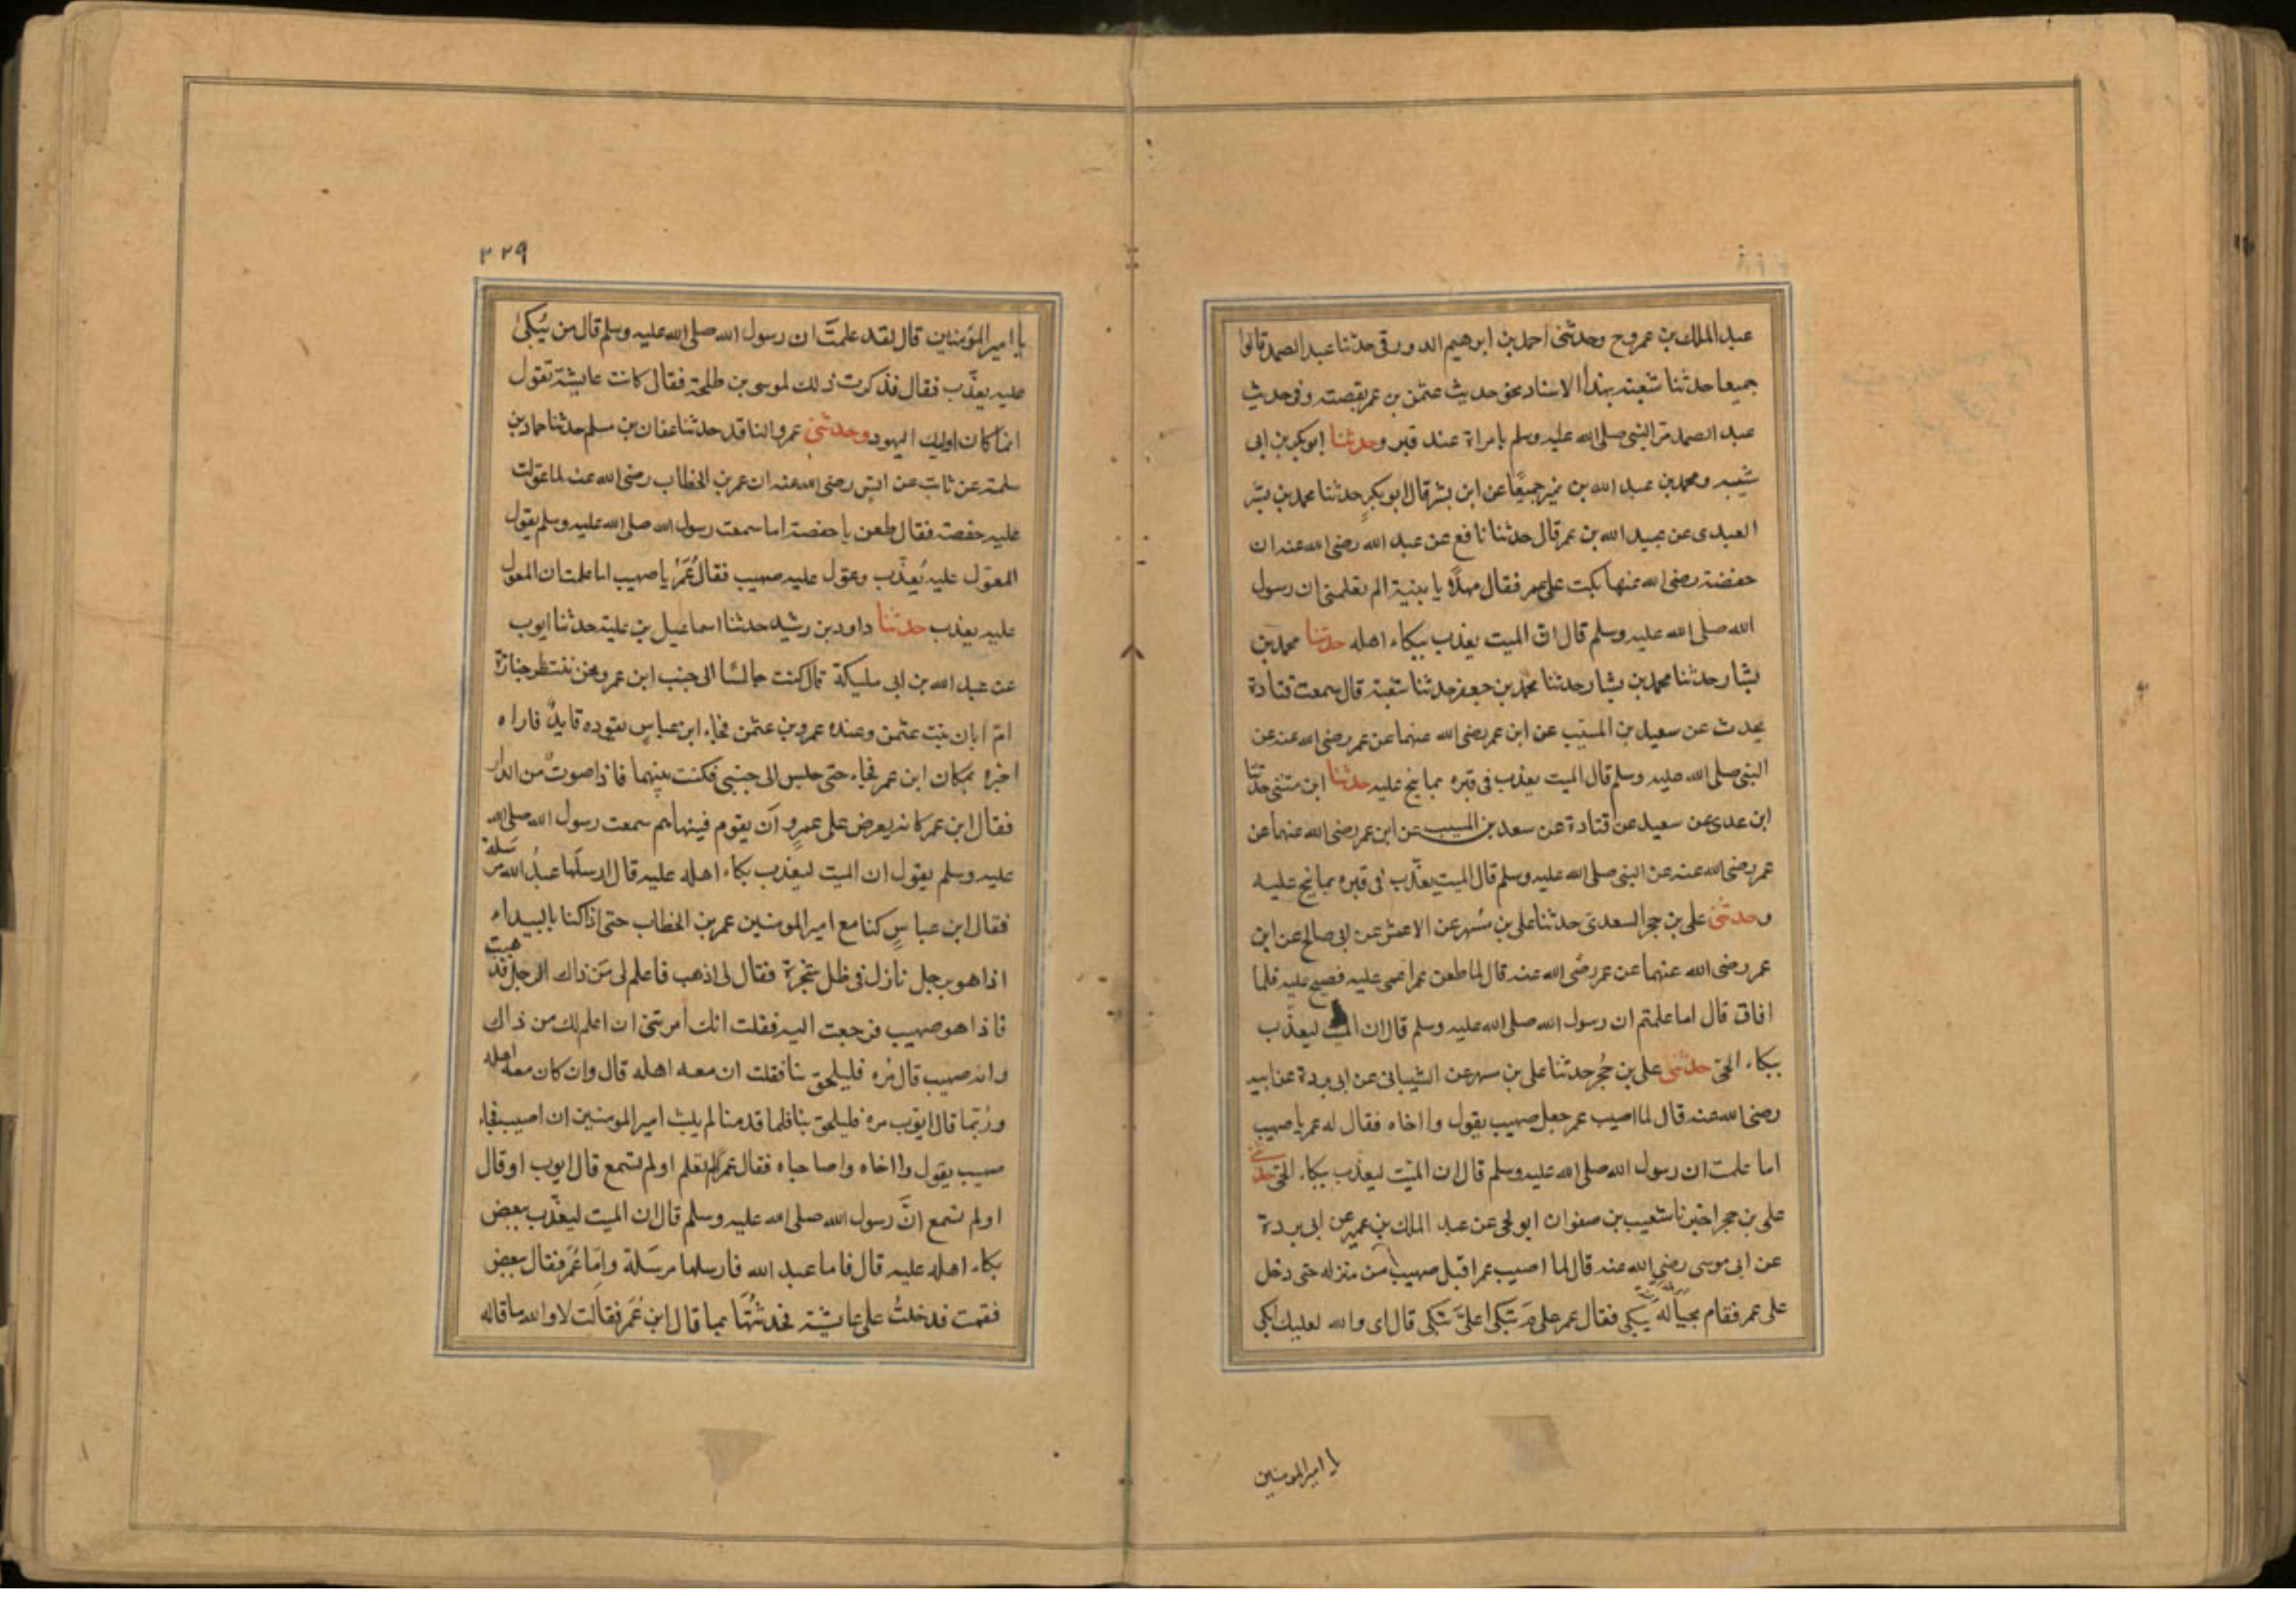 عبد الملك بن عمرو ح وحدثنى احمد بن ابرهيم الدورقى حدثنا عبد الصمد قالوا
جميعا حدثنا شعبة بهذا الاسناد نحو حديث عثمن بن عمر بقصته وفى حديث
عبد الصمد مرّ النبى صلى الله عليه وسلم بامراة عند قبر وحدثنا ابو بكر بن ابى
شيبه ومحمد بن عبد الله بن نمير جميعًا عن ابن بشر قال ابو بكرٍ حدثنا محمد بن بشر
العبدى عن عبيد الله بن عمر قال حدثنا نافع عن عبد الله رضى الله عنه ان
حفصة رضى الله عنها بكت على عمر فقال مهلًا يا بنية الم تعلمى ان رسول
الله صلى الله عليه وسلم قال انّ الميت يعذب ببكاء اهله حدثنا محمد بن
بشار حدثنا محمد بن بشار حدثنا محمد بن جعفر حدثنا شعبة قال سمعت قتادة
يحدث عن سعيد بن المسيّب عن ابن عمر رضى الله عنهما عن عمر رضى الله عنه عن
النبى صلى الله عليه وسلم قال الميت يعذب فى قبره بما نيح عليه حدثنا ابن مثنى حدثنا
ابن عدى عن سعيد عن قتادة عن سعد بن المسيب عن ابن عمر رضى الله عنهما عن
عمر رضى الله عنه عن النبى صلى الله عليه وسلم قال الميت يعذّب فى قبره بما نيح عليه
وحدثنى على بن حجر السعدى حدثنا على بن مسُهر عن الاعمش عن ابى صالح عن ابن
عمر رضى الله عنهما عن عمر رضى الله عنه قال لما طعن عمر اغمى عليه فصيح عليه فلما
افاق قال اما علمتم ان رسول الله صلى الله عليه وسلم قال ان الميت ليعذّب
ببكاء الحىّ حدثنى على بن حُجر حدثنا على بن مسهر عن الشيبانى عن ابى بردة عن ابيه
رضى الله عنه قال لما اصيب عمر جعل صهيب يقول وااخاه فقال له عمر يا صهيب
اما علمت ان رسول الله صلى الله عليه وسلم قال ان الميّت ليعذب ببكاء الحىّ حدثنى
على بن حجر اخبرنا شعيب بن صفوان ابو يحى عن عبد الملك بن عمير عن ابى بردة
عن ابى موسى رضى الله عنه قال لما اصيب عمر اقبل صهيب من منزله حتى دخل
على عمر فقام بحياله يبكى فقال عمر على مَ تبكى اعلىّ تبكى قال اى والله لعليك ابكى
يا امير المومنين
٢٢٩
يا امير المؤمنين قال لقد علمتَ ان رسول الله صلى الله عليه وسلم قال من يُبكى
عليه يعذّب فقال فذكرت ذلك لموسى بن طلحة فقال كانت عايشة تقول
انما كان اوليك اليهود وحدثنى عمرو الناقد حدثنا عفان بن مسلم حدثنا حماد بن
سلمة عن ثابت عن انس رضى الله عنه ان عمر بن الخطاب رضى الله عنه لما عوّلت
عليه حفصة فقال طعن يا حفصة اما سمعت رسول الله صلى الله عليه وسلم يقول
المعوّل عليه يُعذّب وعوّل عليه صهيب فقال عُمَرُ يا صهيب اما علمت ان المعول
عليه يعذب حدثنا داود بن رشيد حدثنا اسماعيل بن علية حدثنا ايوب
عن عبد الله بن ابى مليكة قال كنت جالسًا الى جنب ابن عمر ونحن ننتظر جنازة
امّ ابان بنت عثمن وعنده عمرو بن عثمن فجاء ابن عباس يقوده قايدٌ فاراه
اخبره بمكان ابن عمر فجاء حتى جلس الى جنبى فكنت بينهما فاذا صوتٌ من الدار
فقال ابن عمر كانه يعرض على عمرٍو ان يقوم فينهاهم سمعت رسول الله صلى الله
عليه وسلم يقول ان الميت ليعذب بكاء اهله عليه قال ارسلها عبدُ الله مرسَلة
فقال ابن عباسٍ كنا مع امير المومنين عمر بن الخطاب حتى اذا كنا بالبيداء
اذا هو برجل نازل فى ظل شجرة فقال لى اذهب فاعلم لى مَن ذاك الرجل فذهبت
فاذا هو صهيب فرجعت اليه فقلت انك امرتنى ان اعلم لك من ذاك
وانه صهيب قال مُره فليلحق بنا فقلت ان معه اهله قال وان كان معه اهله
ورُبّما قال ايوّب مره فليلحق بنا فلما قدمنا لم يلبث امير المومنين ان اصيب فجاء
صهيب يقول وااخاه واصاحباه فقال عمر الم تعلم اولم تسمع قال ايوب او قال
اولم تسمع انَّ رسول الله صلى الله عليه وسلم قال ان الميت ليعذّب ببعض
بكاء اهله عليه قال فاما عبد الله فارسلها مرسَلة وامّا عُمَر فقال ببعض
فقمت فدخلتُ على عايشة فحدثتُهَا بما قال ابن عُمَر فقالت لا والله ما قاله